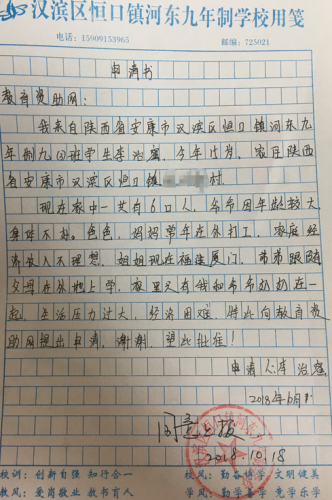 汉滨区恒口镇河东九年制学校用笺
电话：15909153965 邮编：725021
申请书
教育资助网：
我来自陕西省安康市汉滨区恒口镇河东九
年制九(3)班学生李治寰，今年15岁，家住陕西
省安康市汉滨区恒口镇 村
现在家中一共有6口人，爷爷因年龄较大
身体不好。爸爸、妈妈常年在外打工，家庭经
济收入不理想，姐姐现在福建厦门，弟弟跟随
父母在外地上学，家里只有我和爷爷奶奶在一
起，生活压力过大，经济困难，特此向教育资
助网提出申请，谢谢，望此批准！
申请人李治寰
2018年10月
同意上报
2018.10.18
校训：创新自强 知行合一 校风：勤奋博学 文明健美
教风：爱岗敬业 教书育人 学风：勤学善思 竞学乐学